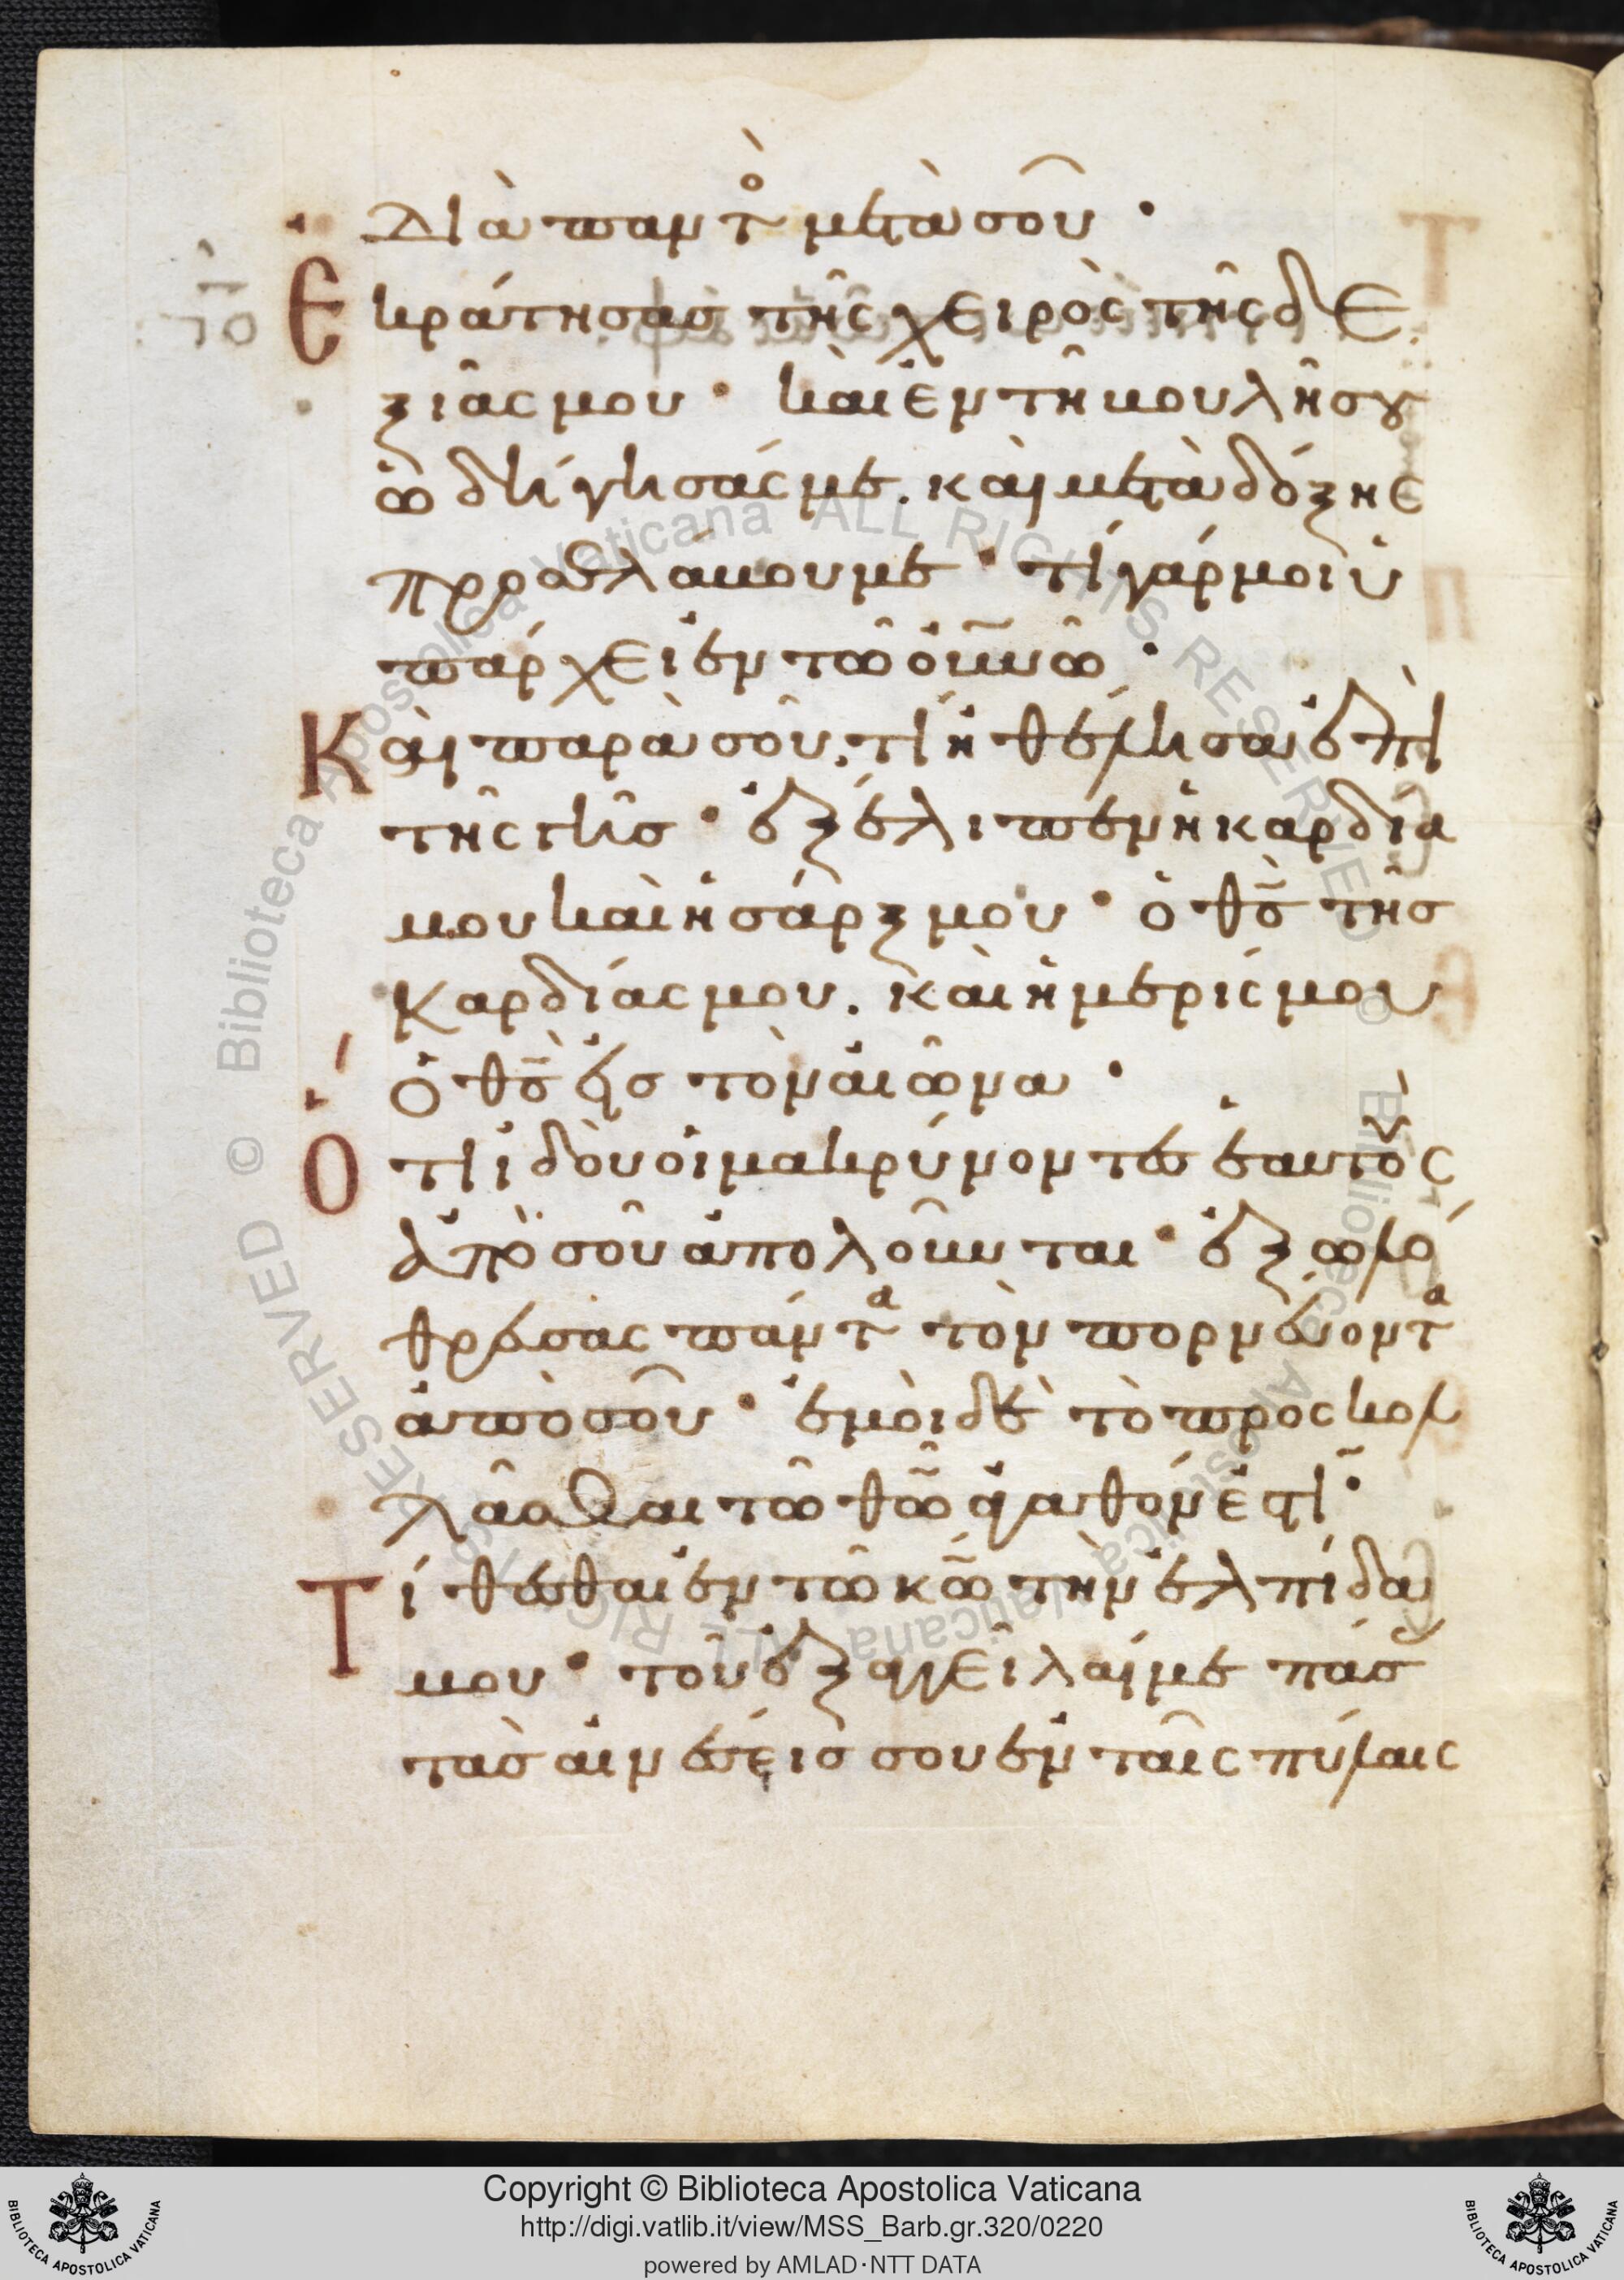 διὰ παντὸ μετὰ σοῦ ·
Ἐκράτησας τῆς χειρὸς τῆς δε
ξιᾶς μου · καὶ ἐν τῆ βουλῆ σου
ὡδήγησάς με. καὶ μετὰ δόξης
προσελάβου με · τί γάρ μοι ὑ
πάρχει ἐν τῶ οὐνῶ ·
Καὶ παρὰ σοῦ, τί ἠθέλησα ἐπὶ
τῆς γῆς · ἐξέλιπεν ἡ καρδία
μου καὶ ἡ σάρξ μου · ὁ θς τῆς
καρδίας μου. καὶ ἡ μερίς μου
ὁ θς εἰς τὸν αἰῶνα ·
Ὅτι ἰδοὺ οἱ μακρύνοντες ἑαυτοὺς
ἀπὸ σοῦ ἀπολοῦνται · ἐξωλό
θρευσας πάντα τὸν πορνεύοντα
ἀπὸ σοῦ · ἐμοὶ δὲ τὸ προσκολ
λᾶσθαι τῶ θῶ ἀγαθόν ἐστι ·
Τίθεσθαι ἐν τῶ κῶ τὴν ἐλπίδα
μου · τοῦ ἐξαγγεῖλαί με πάσ
τὰς αἰνέσεις σου ἐν ταῖς πύλαις
Copyright © Biblioteca Apostolica Vaticana
http://digi.vatlib.it/view/MSS_Barb.gr.320/0220
powered by AMLAD·NTT DATA
BIBLIOTECA APOSTOLICA VATICANA
BIBLIOTECA APOSTOLICA VATICANA